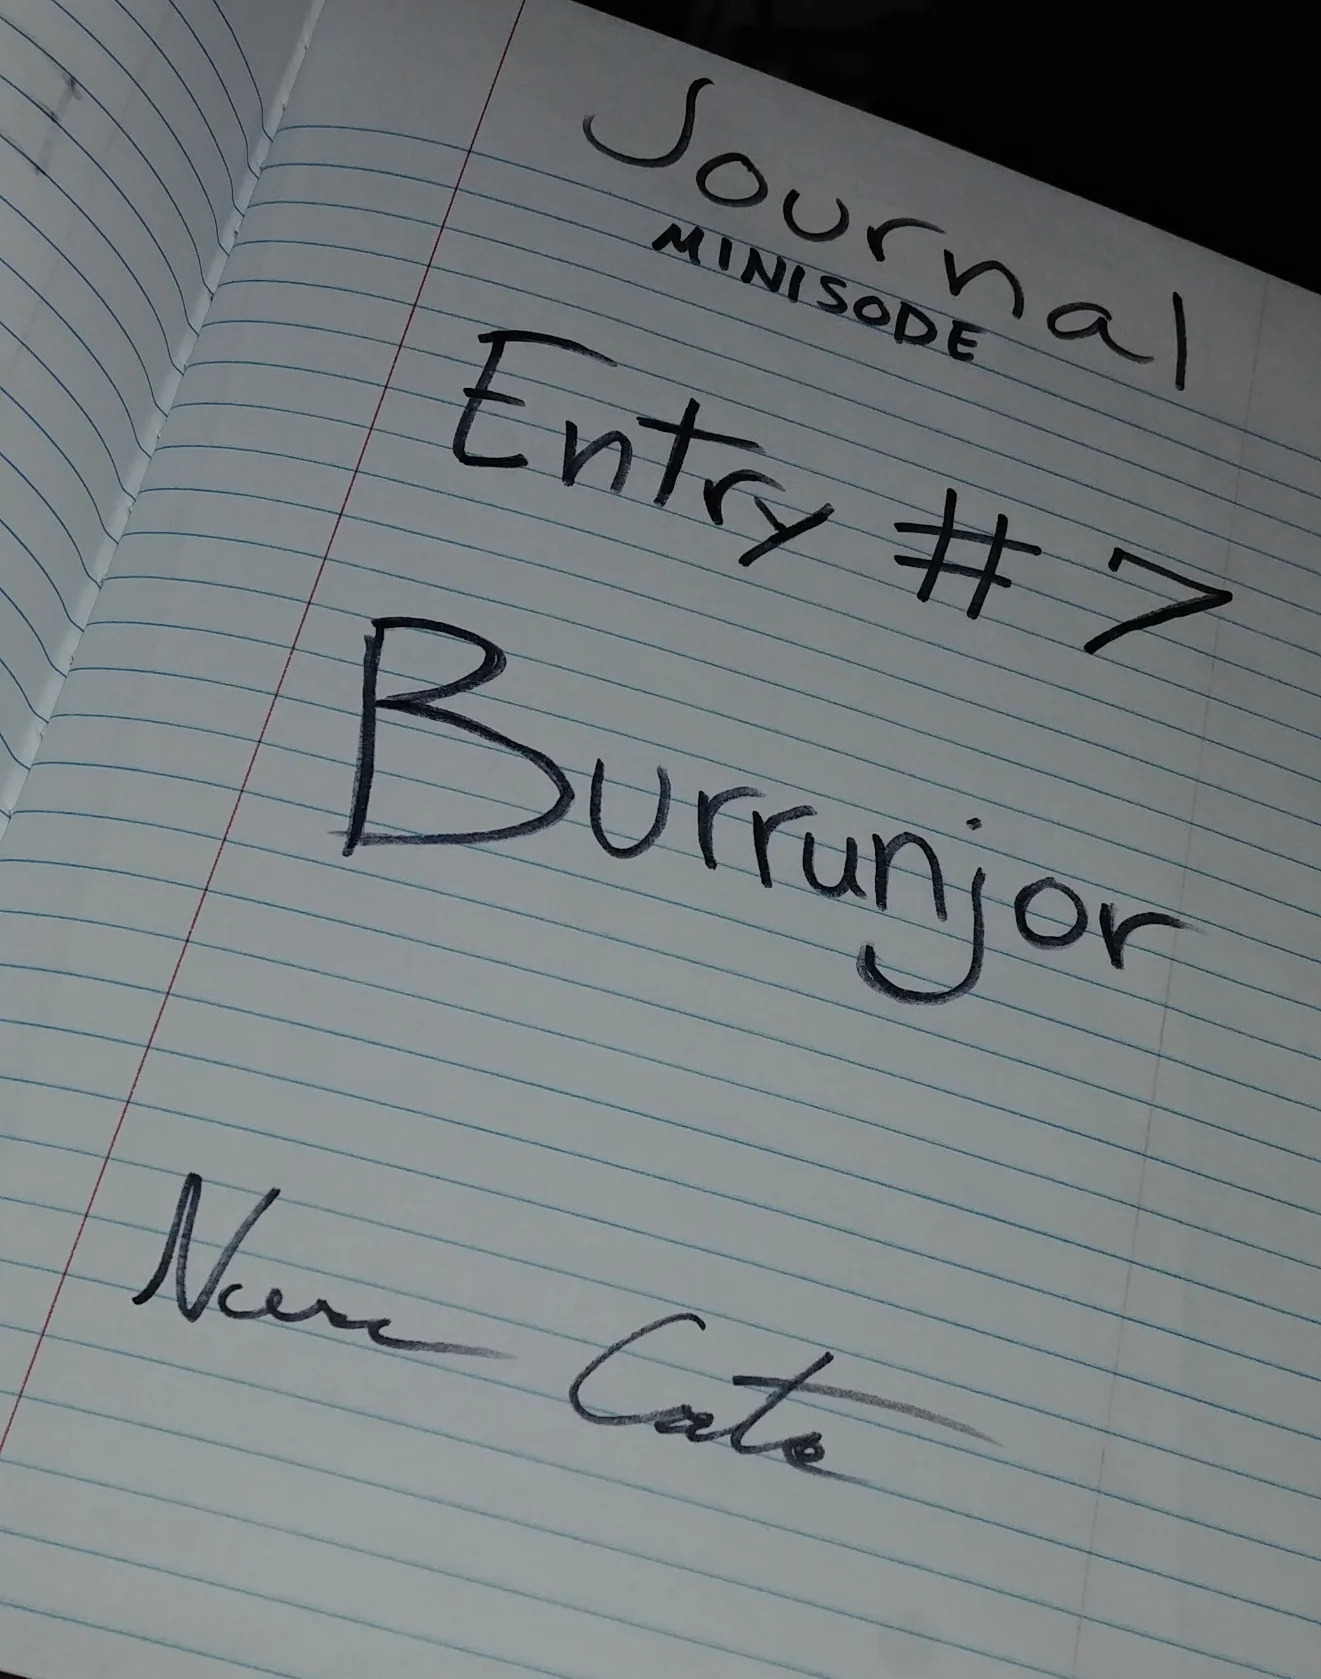 Journal
MINISODE
Entry # 7
Burrunjor
Narc Cato